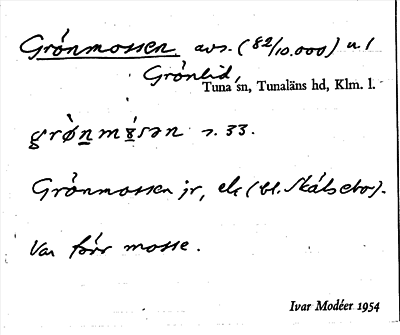 Grönmossen avs. (82/10.000) u. /
Grönlid,
Tuna sn, Tunaläns hd, Klm. l.
grø̀nmɷ́sən s. 33.
Grönmossen jr,
Var förr mosse.
Ivar Modéer 1954